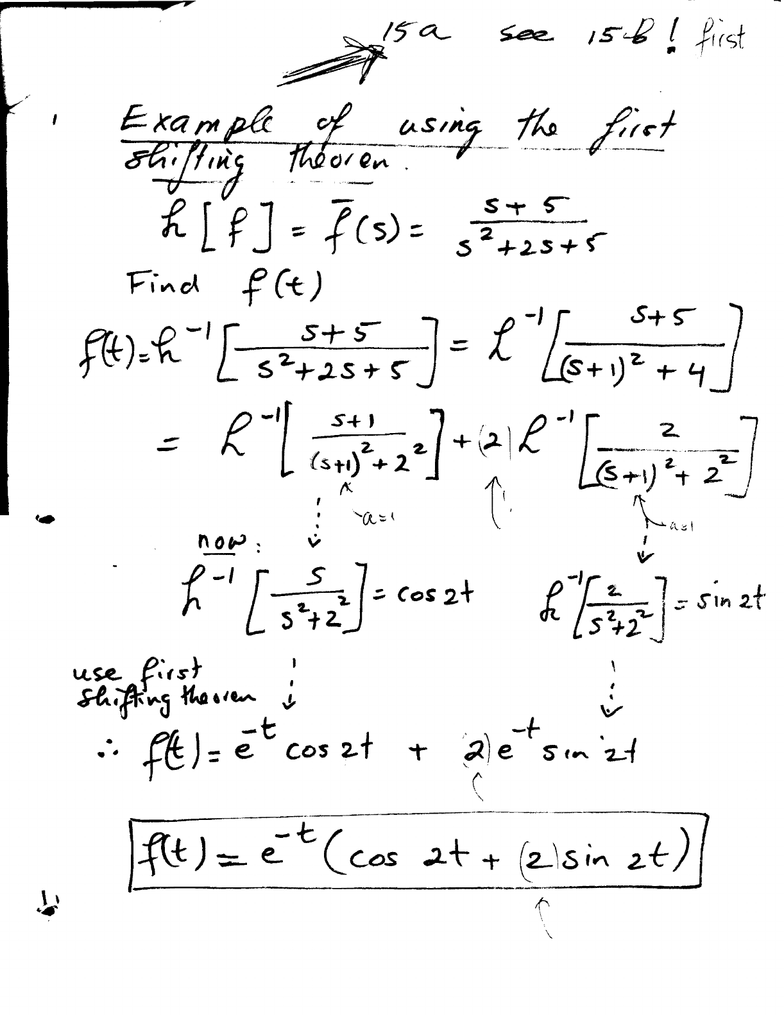 15a see 15b! first
Example of using the first
shifting theorem.
ℒ[f] = f̄(s) = (s+5)/(s²+2s+5)
Find f(t)
f(t) = ℒ⁻¹[(s+5)/(s²+2s+5)] = ℒ⁻¹[(s+5)/((s+1)²+4)]
= ℒ⁻¹[(s+1)/((s+1)²+2²)] + (2) ℒ⁻¹[2/((s+1)²+2²)]
a=1 a=1
now:
ℒ⁻¹[s/(s²+2²)] = cos 2t ℒ⁻¹[2/(s²+2²)] = sin 2t
use first
shifting theorem
∴ f(t) = e⁻ᵗ cos 2t + 2) e⁻ᵗ sin 2t
f(t) = e⁻ᵗ (cos 2t + (2) sin 2t)